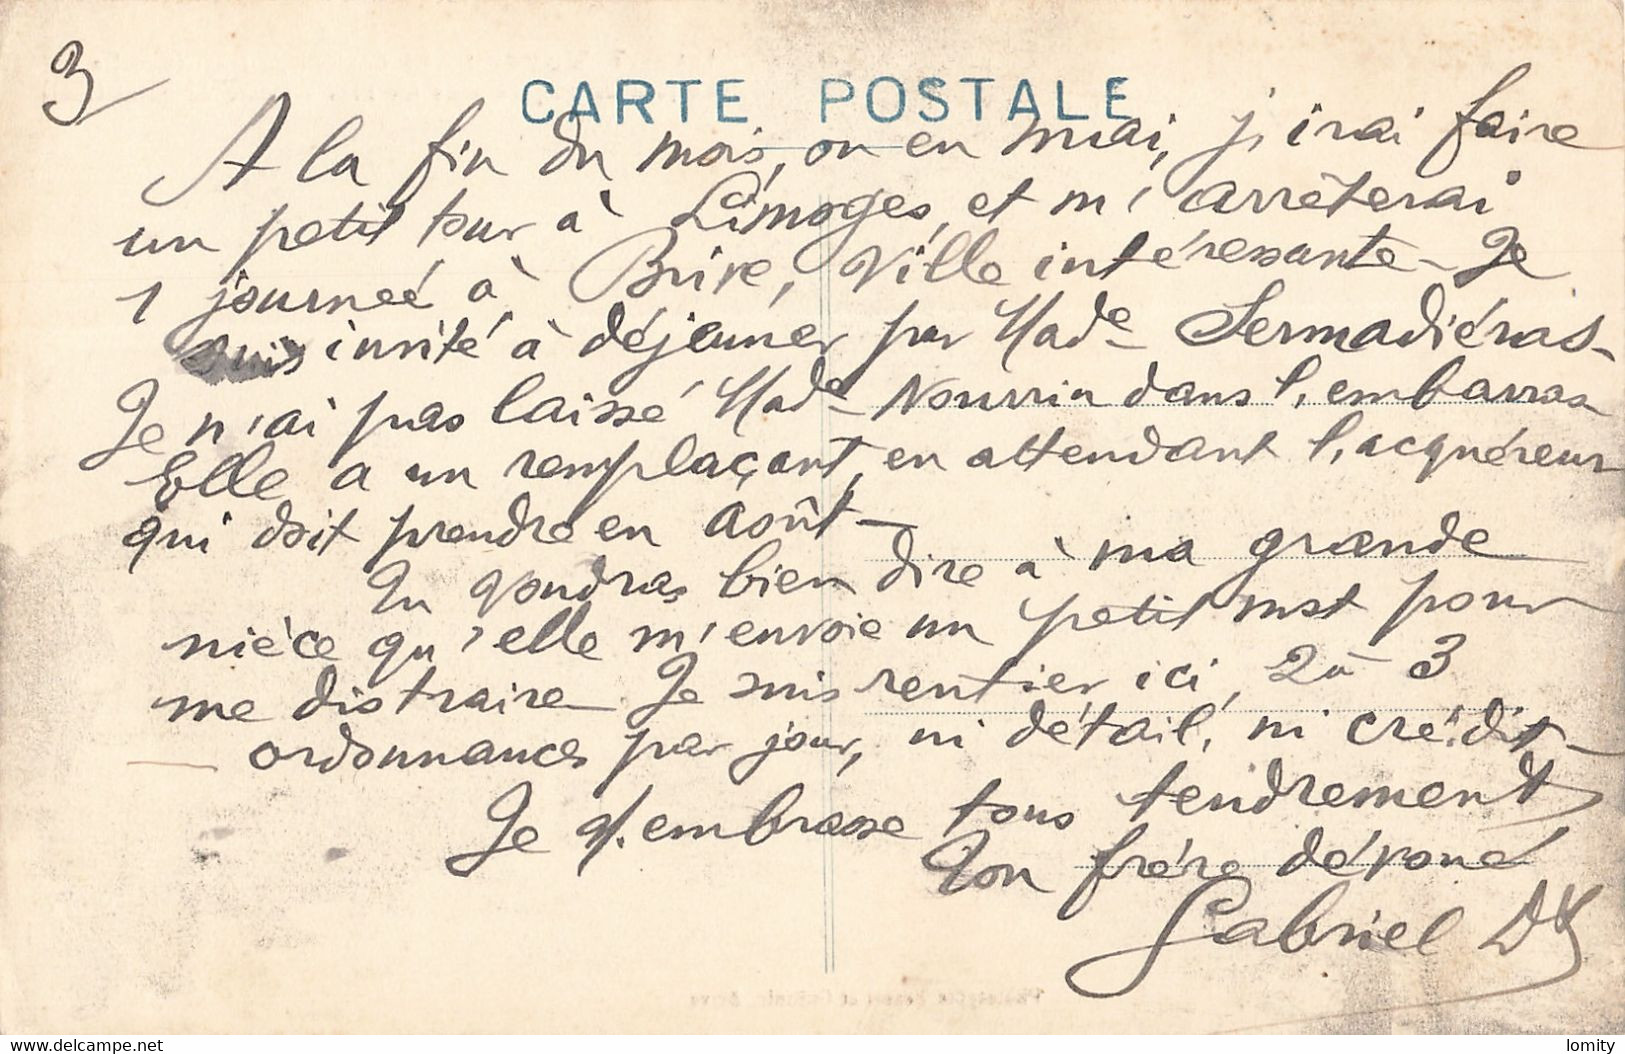 3
CARTE POSTALE
A la fin du mois, ou en mai, j'irai faire
un petit tour à Limoges, et m'arrêterai
1 journeé à Brive, Ville intéressante - Je
suis invité à déjeuner par Made Sermadiéras -
Je n'ai pas laissé Made Nourrin dans l'embarras
Elle a un remplaçant, en attendant l'acquéreur
qui doit prendre en août -
Tu voudras bien dire à ma grande
nièce qu'elle m'envoie un petit mst pour
me distraire. Je suis rentier ici, 2 à 3
ordonnances par jour, ni détail, ni crédit -
Je v. embrasse tous tendrement
Ton frére dévoué
Gabriel
www.delcampe.net
lomity